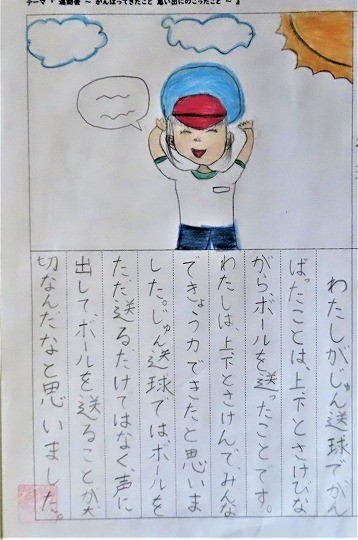 テーマ『運動会 ～ がんばってきたこと 思い出にのこったこと ～』
わたしがじゅん送球でがん
ばったことは、上下とさけびな
がらボールを送ったことです。
わたしは、上下とさけんで、みんな
できょう力できたと思いま
した。じゅん送球ではボールを
ただ送るだけではなく、声に
出して、ボールを送ることが大
切なんだなと思いました。